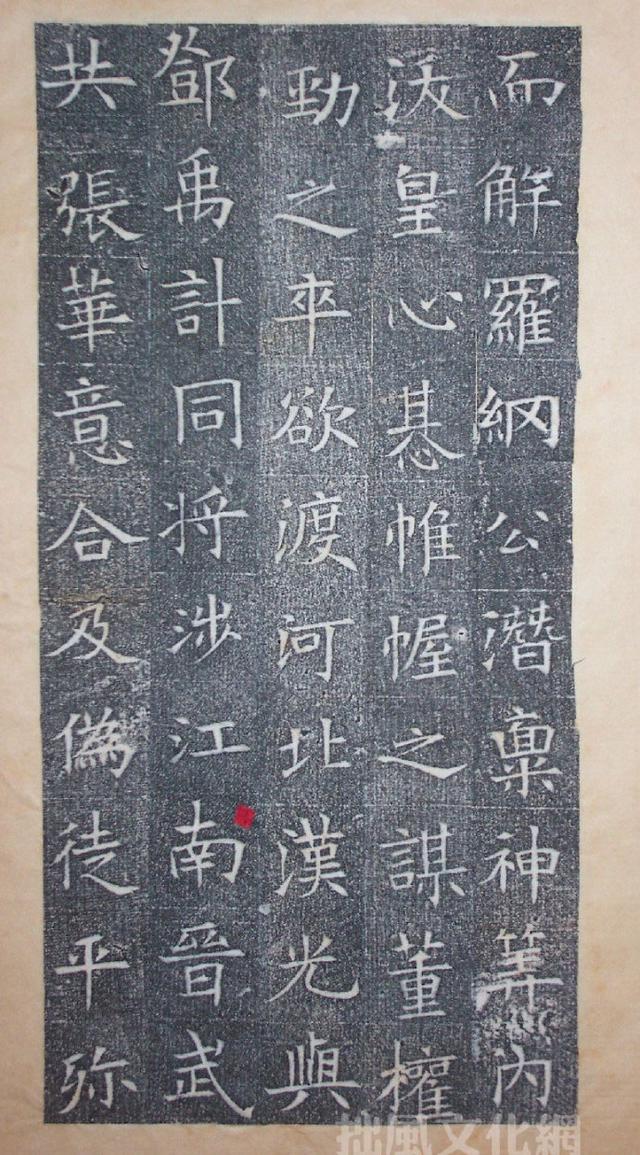 而解羅網公潛稟神筭內
沃皇心惎帷幄之謀董權
勁之卒欲渡河北漢光與
鄧禹計同將涉江南晉武
共張華意合及偽徒平弥
拙風文化網